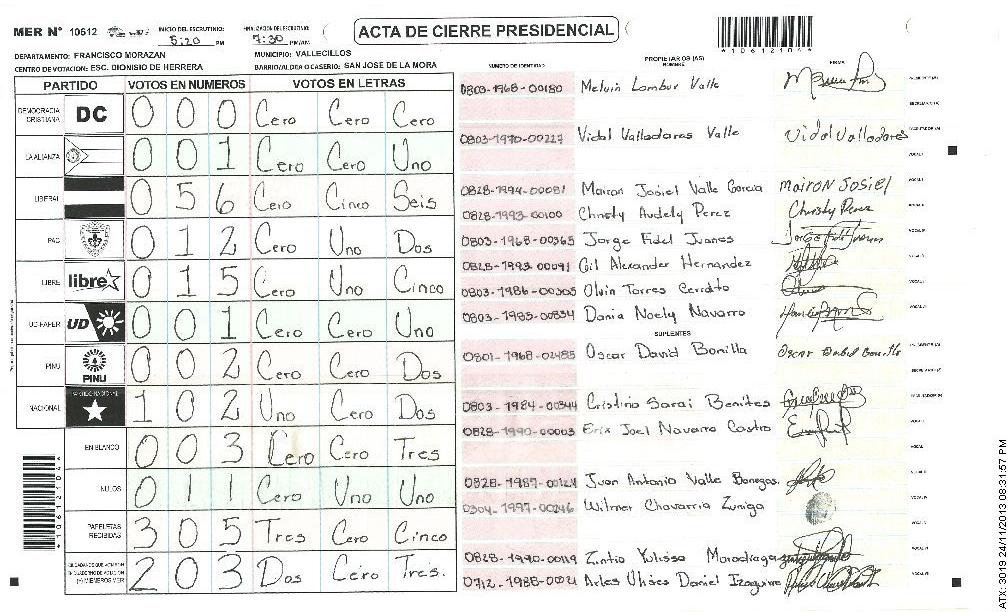 MER N° 10612 INICIO DEL ESCRUTINIO: 5:20 PM FINALIZACION DEL ESCRUTINIO: 7:30 PM/AM
ACTA DE CIERRE PRESIDENCIAL
*10612104*
DEPARTAMENTO: FRANCISCO MORAZAN MUNICIPIO: VALLECILLOS
CENTRO DE VOTACION: ESC. DIONISIO DE HERRERA BARRIO/ALDEA O CASERIO: SAN JOSE DE LA MORA
NUMERO DE IDENTIDAD PROPIETARIOS (AS) NOMBRE FIRMA
PARTIDO VOTOS EN NUMEROS VOTOS EN LETRAS
DEMOCRACIA CRISTIANA DC 0 0 0 Cero Cero Cero
LA ALIANZA 0 0 1 Cero Cero Uno
LIBERAL 0 5 6 Cero Cinco Seis
PAC 0 1 2 Cero Uno Dos
LIBRE libre 0 1 5 Cero Uno Cinco
UD-FAPER UD 0 0 1 Cero Cero Uno
PINU PINU 0 0 2 Cero Cero Dos
NACIONAL 1 0 2 Uno Cero Dos
EN BLANCO 0 0 3 Cero Cero Tres
NULOS 0 1 1 Cero Uno Uno
PAPELETAS RECIBIDAS 3 0 5 Tres Cero Cinco
(+) MIEMBROS MER 2 0 3 Dos Cero Tres.
*10612104*
0803-1968-00180 Melvin Lombur Valle
0803-1970-00227 Vidal Valladares Valle Vidal Valladares
0828-1994-00081 Mairon Josiel Valle Garcia Mairon Josiel
0828-1993-00100 Christy Audely Perez Christy Perez
0803-1968-00365 Jorge Fidel Juanes
0828-1993-00091 Gil Alexander Hernandez
0803-1986-00305 Olvin Torres Cerrato
0803-1985-00834 Dania Noely Navarro
SUPLENTES
0801-1968-02485 Oscar David Bonilla Oscar David Bonilla
0803-1984-00344 Cristina Sarai Benites
0828-1990-00003 Erix Joel Navarro Castro
0828-1987-00124 Juan Antonio Valle Banegas
0304-1997-00246 Wilmer Chavarria Zuniga
0828-1990-00119 Zintia Yulissa
0712-1988-00021 Arles Ulises Daniel Izaguirre
ATX-3019 24/11/2013 08:31:57 PM